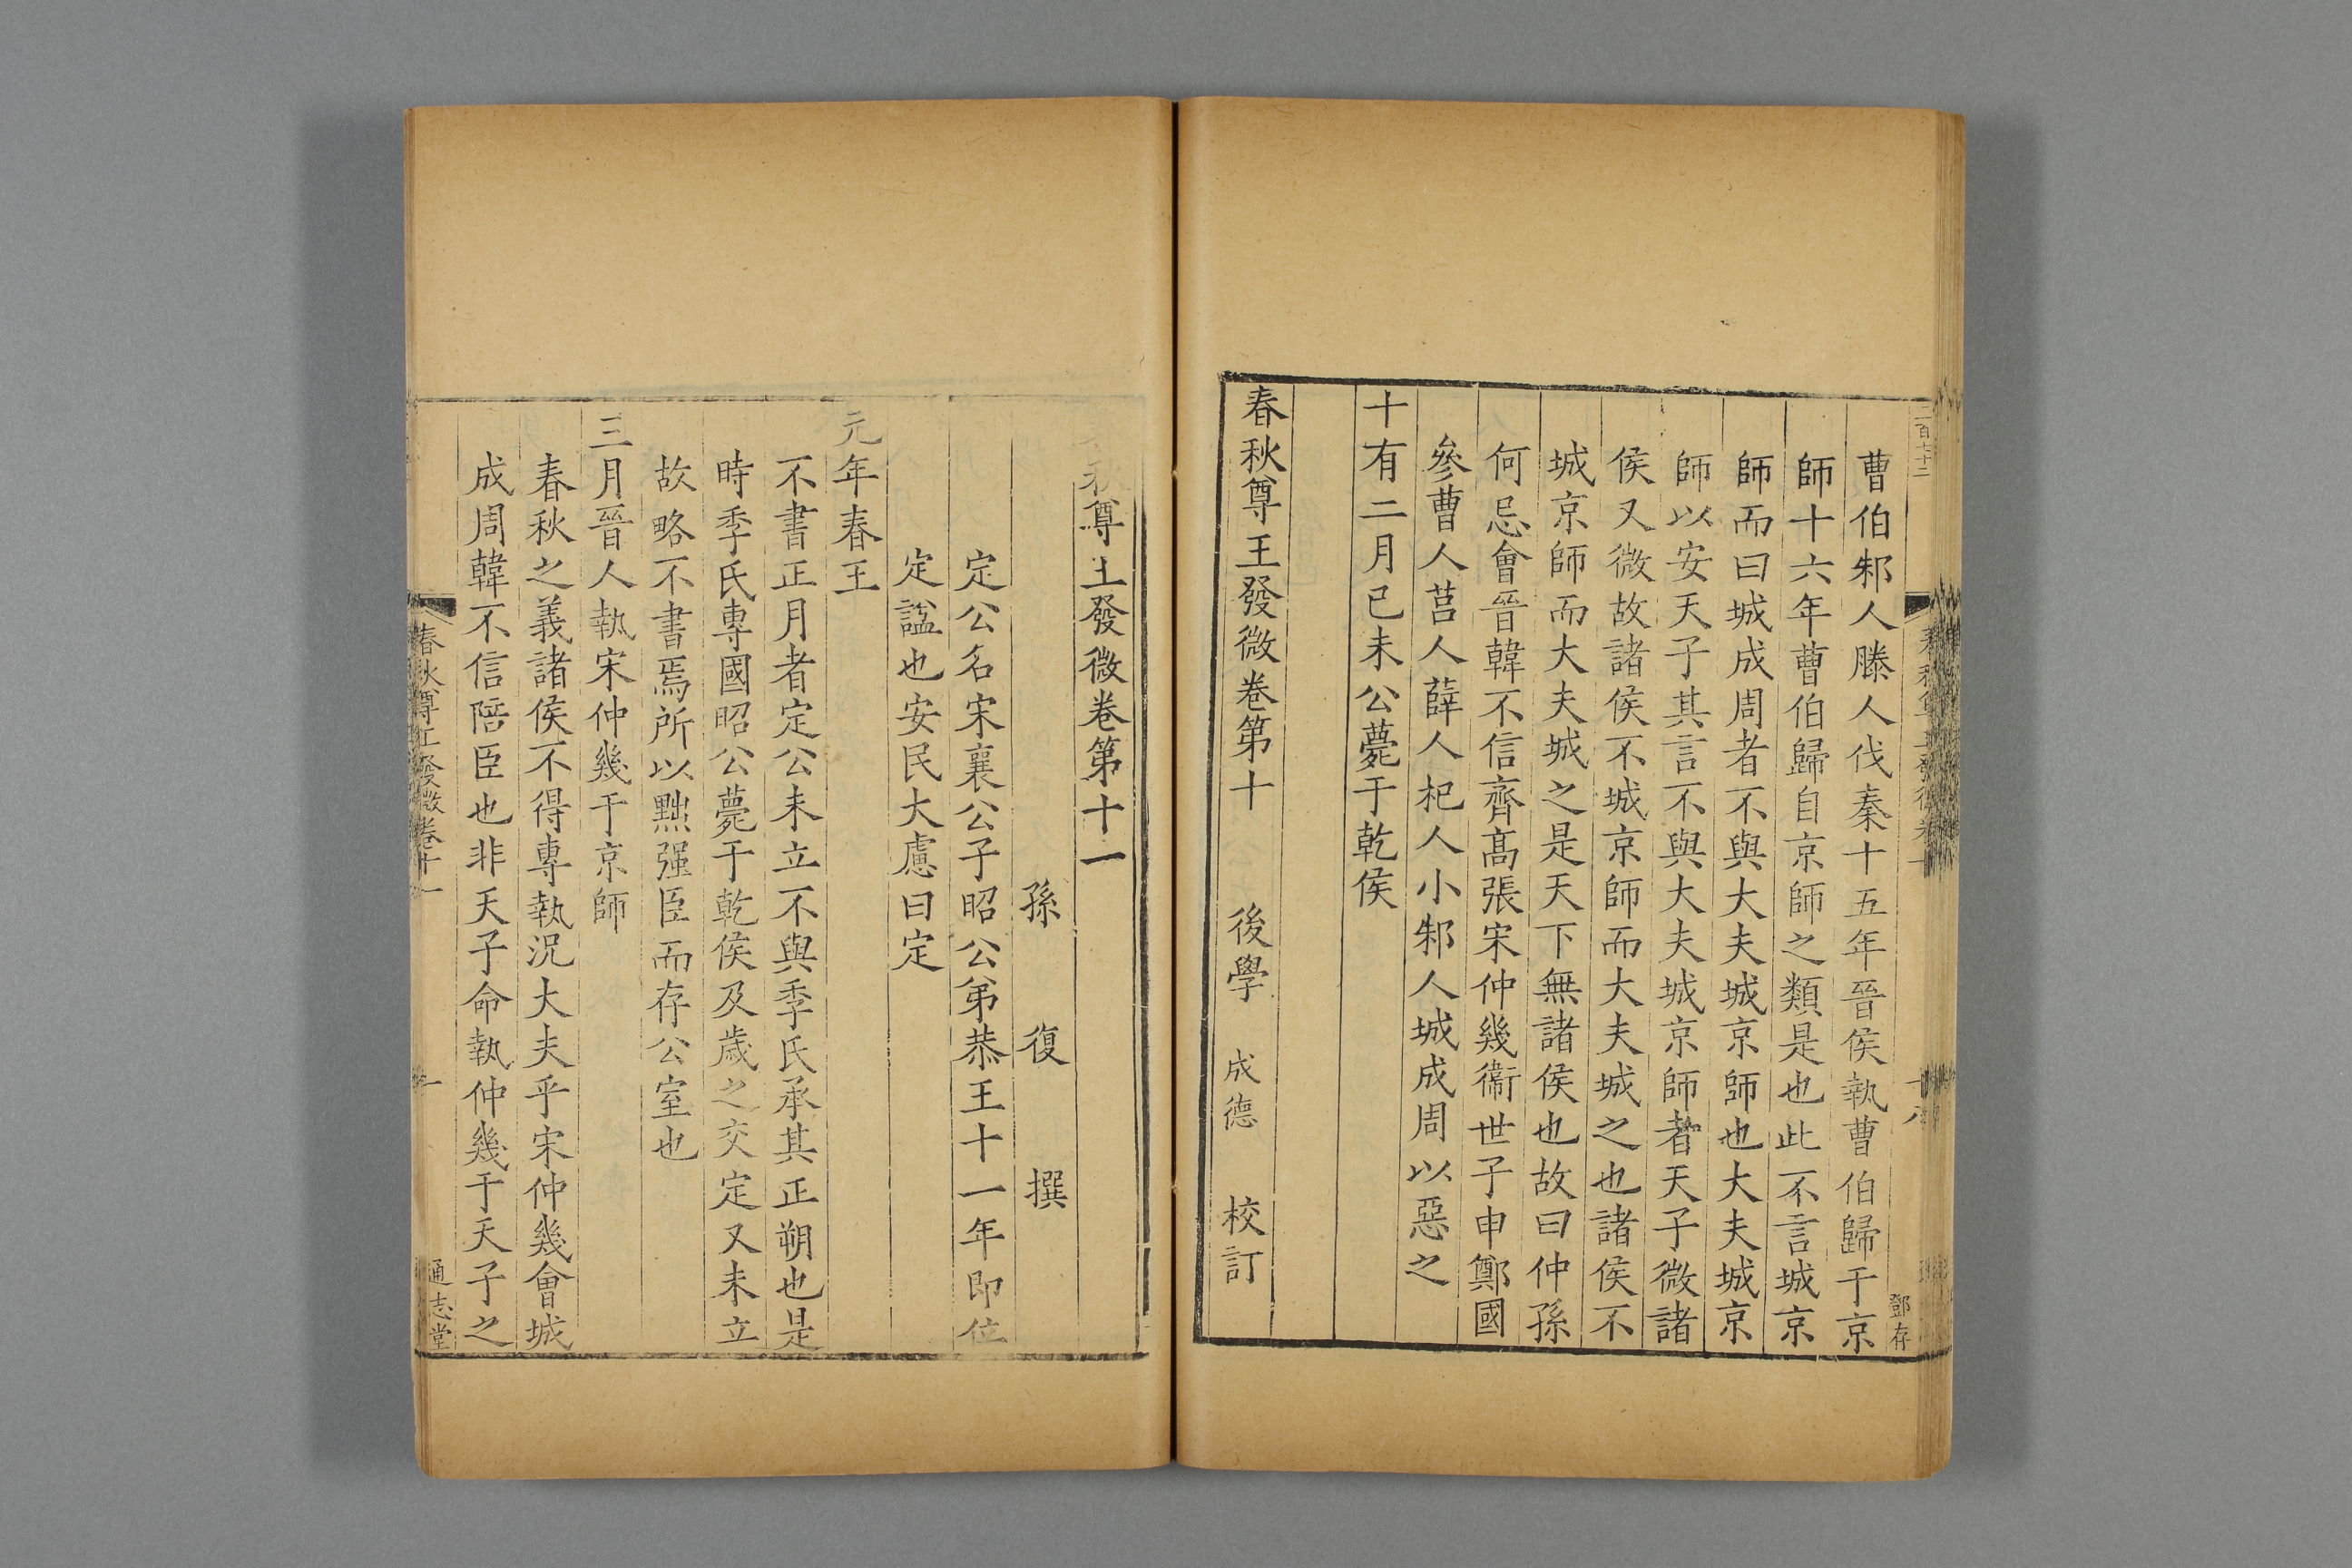 二百七十二
曹伯邾人滕人伐秦十五年晉侯執曹伯歸于京
師十六年曹伯歸自京師之類是也此不言城京
師而曰城成周者不與大夫城京師也大夫城京
師以安天子其言不與大夫城京師者天子微諸
侯又微故諸侯不城京師而大夫城之也諸侯不
城京師而大夫城之是天下無諸侯也故曰仲孫
何忌會晉韓不信齊高張宋仲幾衞世子申鄭國
參曹人莒人薛人杞人小邾人城成周以惡之
十有二月已未公薨于乾侯
春秋尊王發微卷第十 後學 成德 校訂
十八
鄧存
秋尊王發微卷第十一
孫 復 撰
定公名宋襄公子昭公弟恭王十一年即位
定諡也安民大慮曰定
元年春王
不書正月者定公未立不與季氏承其正朔也是
時季氏專國昭公薨于乾侯及歲之交定又未立
故略不書焉所以黜强臣而存公室也
三月晉人執宋仲幾于京師
春秋之義諸侯不得專執況大夫乎宋仲幾會城
成周韓不信陪臣也非天子命執仲幾于天子之
春秋尊王發微卷十一
一
通志堂